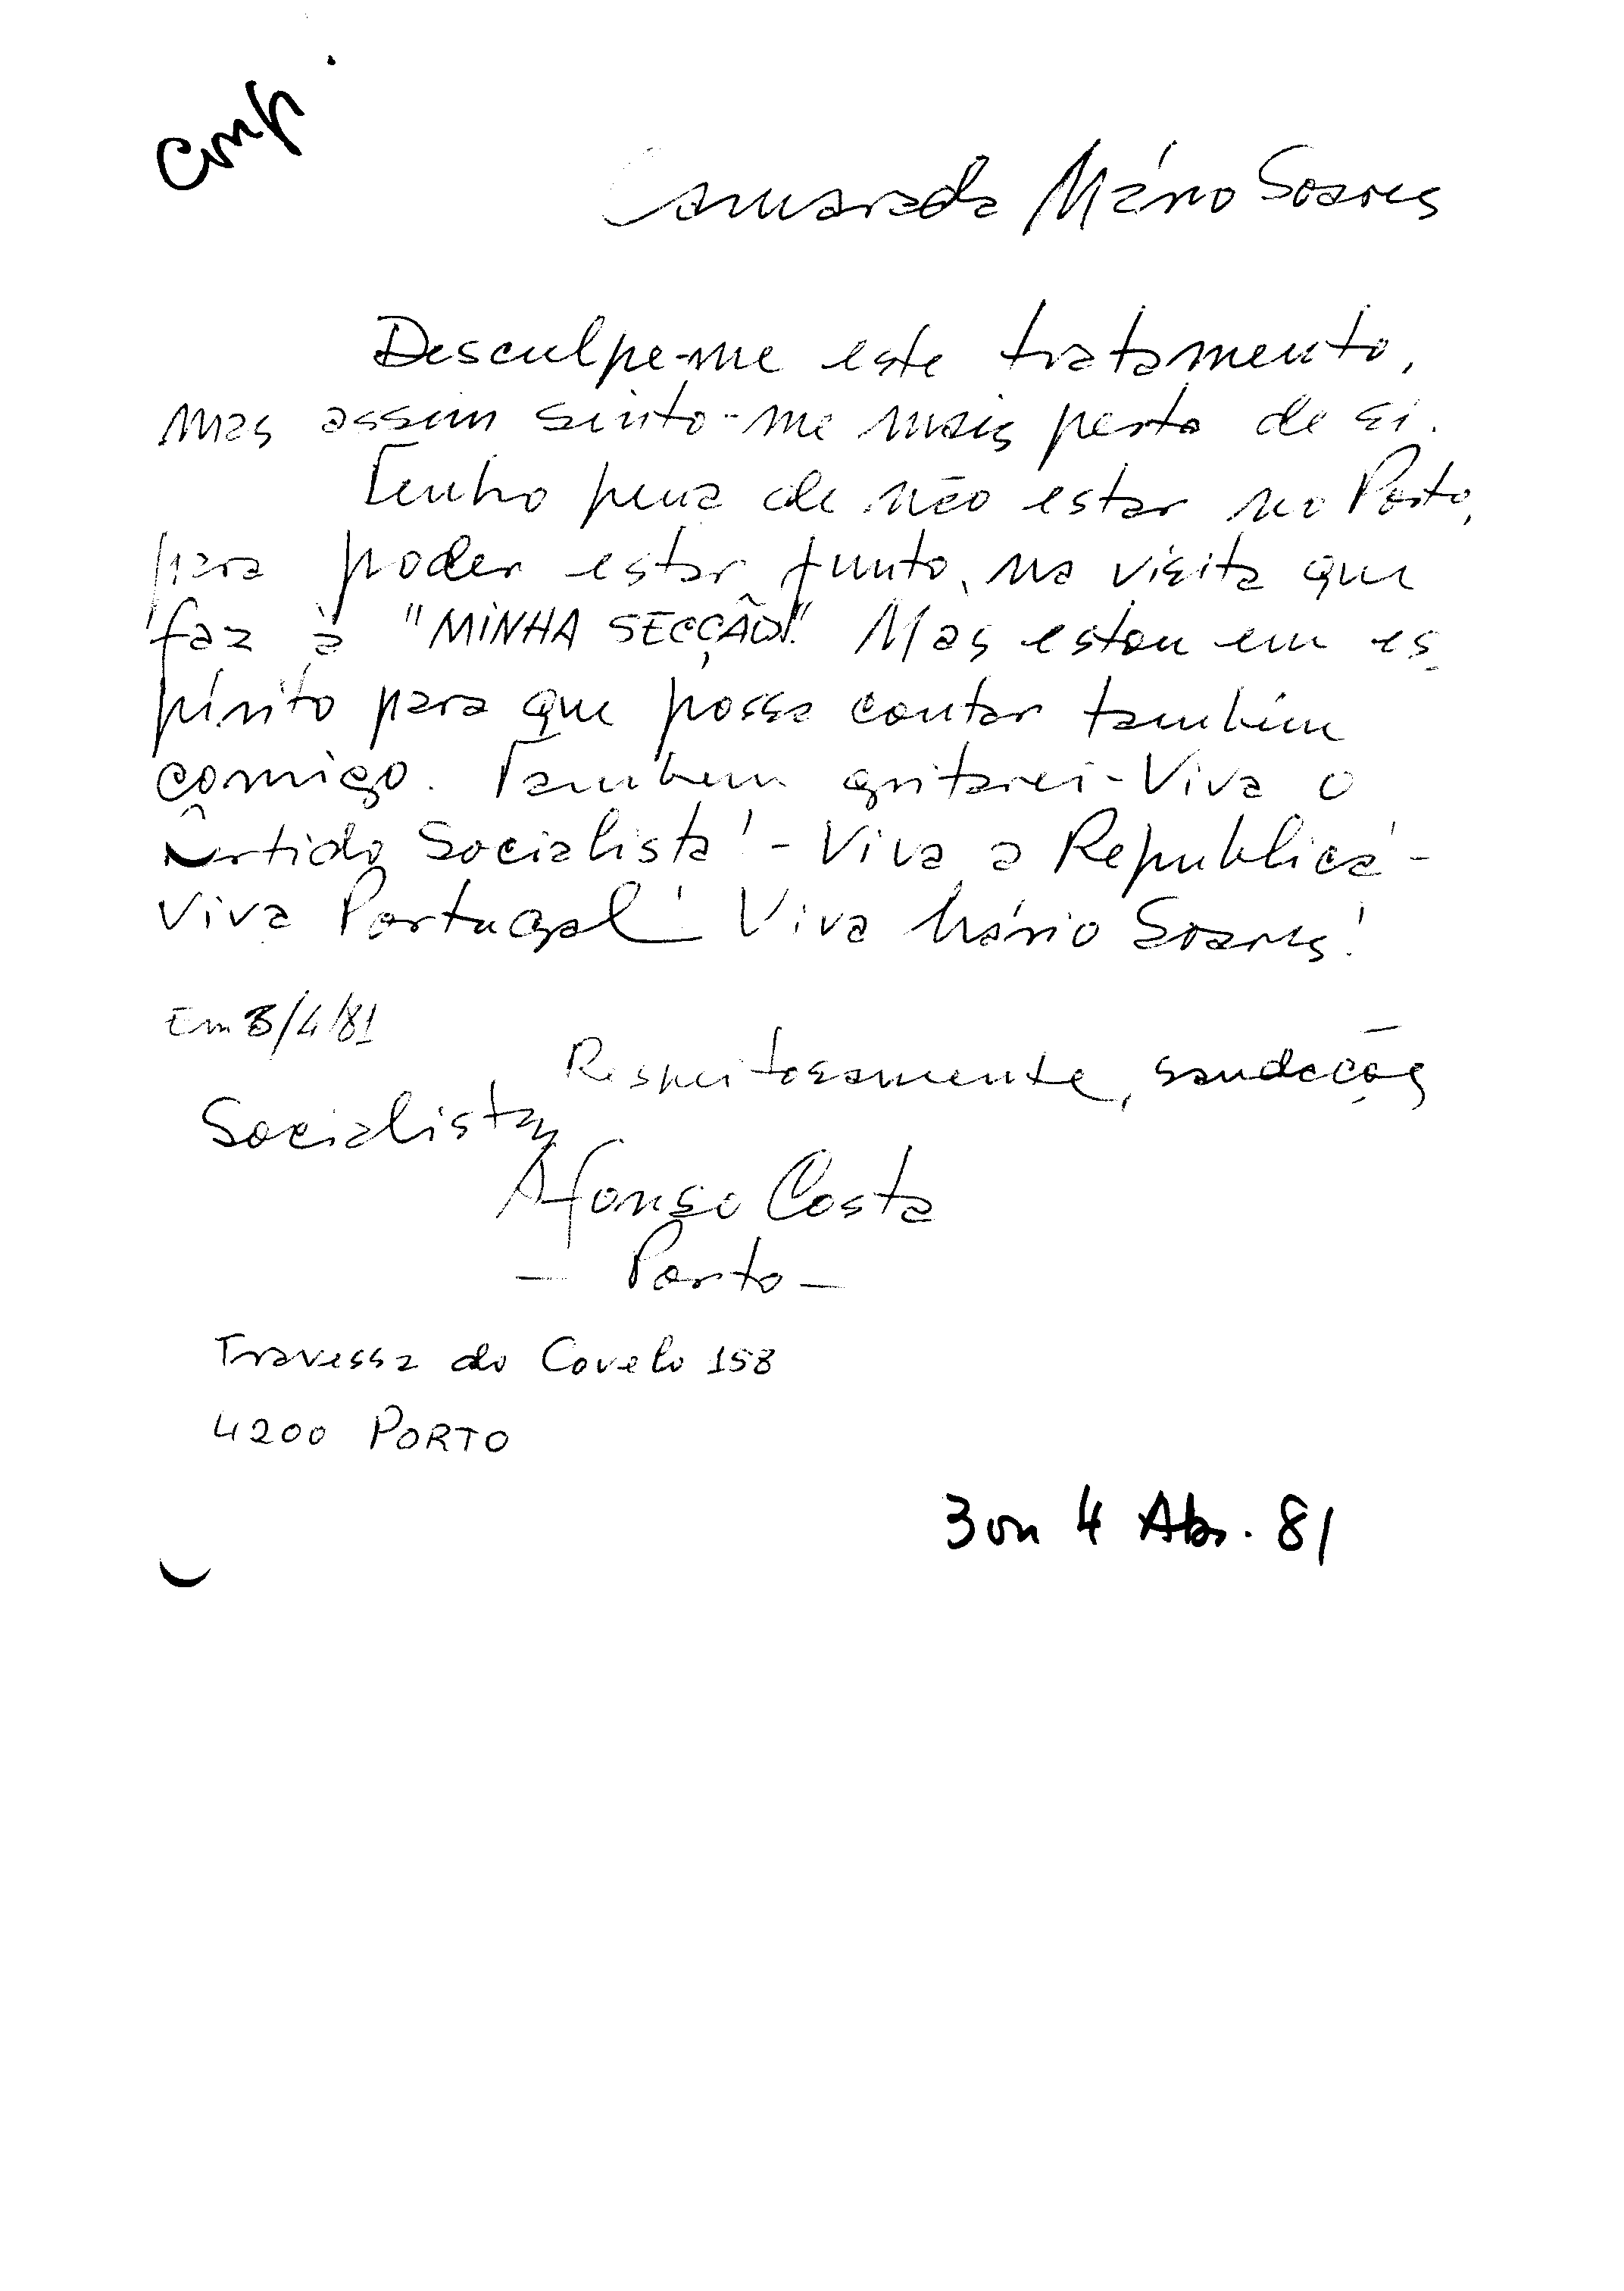 Camarada Mário Soares
Desculpe-me este tratamento,
mas assim sinto-me mais perto de si.
Tenho pena de não estar no Porto,
para poder estar junto, na visita que
faz à "MINHA SECÇÃO!" Mas estou em es-
pírito para que possa contar também
comigo. Tambem gritarei - Viva o
Partido Socialista! - Viva a Republica! -
Viva Portugal! Viva Mário Soares!
Em 3/4/81
Respeitosamente, saudações
Socialistas
Afonso Costa
- Porto -
Travessa do Covelo 158
4200 PORTO
3 ou 4 Abr. 81